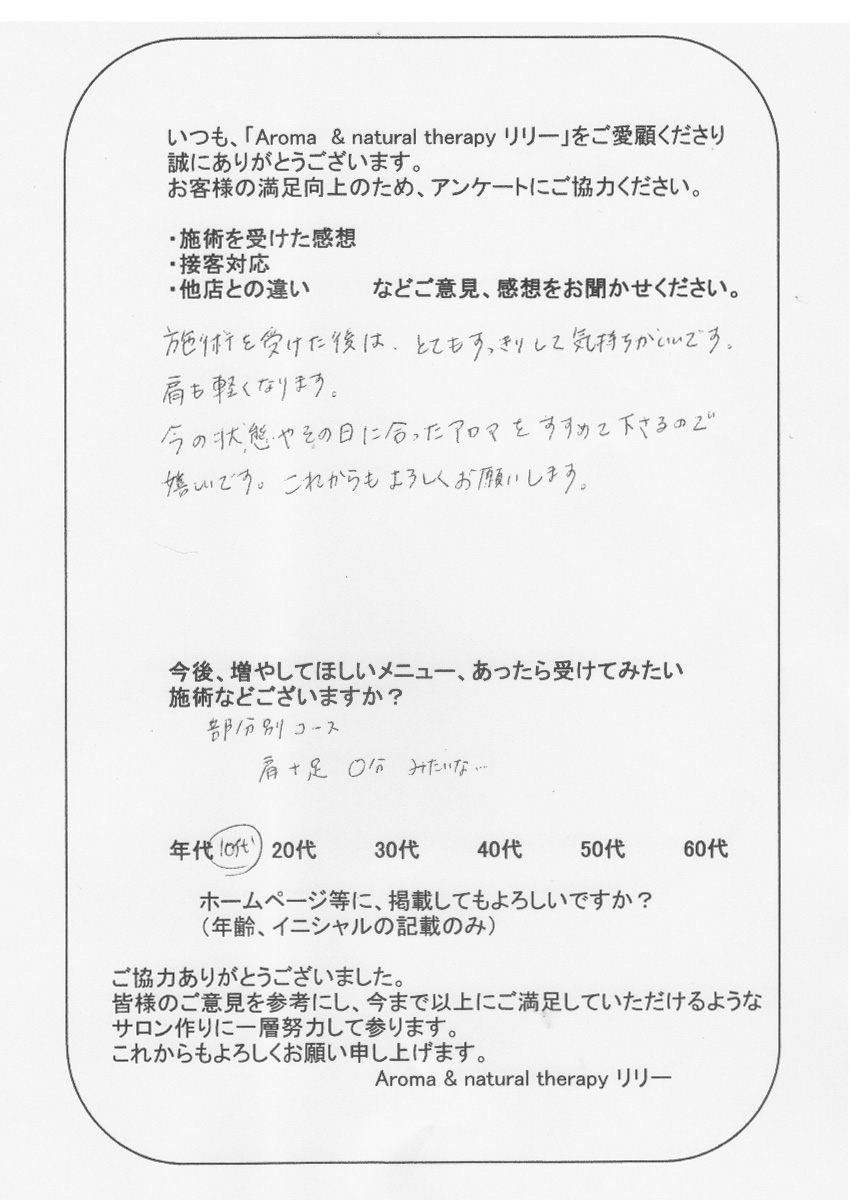 いつも、「Aroma & natural therapy リリー」をご愛顧くださり
誠にありがとうございます。
お客様の満足向上のため、アンケートにご協力ください。
・施術を受けた感想
・接客対応
・他店との違い　　などご意見、感想をお聞かせください。
施術を受けた後は、とてもすっきりして気持ちがいいです。
肩も軽くなります。
今の状態やその日に合ったアロマをすすめて下さるので
嬉しいです。これからもよろしくお願いします。
今後、増やしてほしいメニュー、あったら受けてみたい
施術などございますか？
部分別コース
肩+足 〇分 みたいな…
年代 10代 20代 30代 40代 50代 60代
ホームページ等に、掲載してもよろしいですか？
（年齢、イニシャルの記載のみ）
ご協力ありがとうございました。
皆様のご意見を参考にし、今まで以上にご満足していただけるような
サロン作りに一層努力して参ります。
これからもよろしくお願い申し上げます。
Aroma & natural therapy リリー